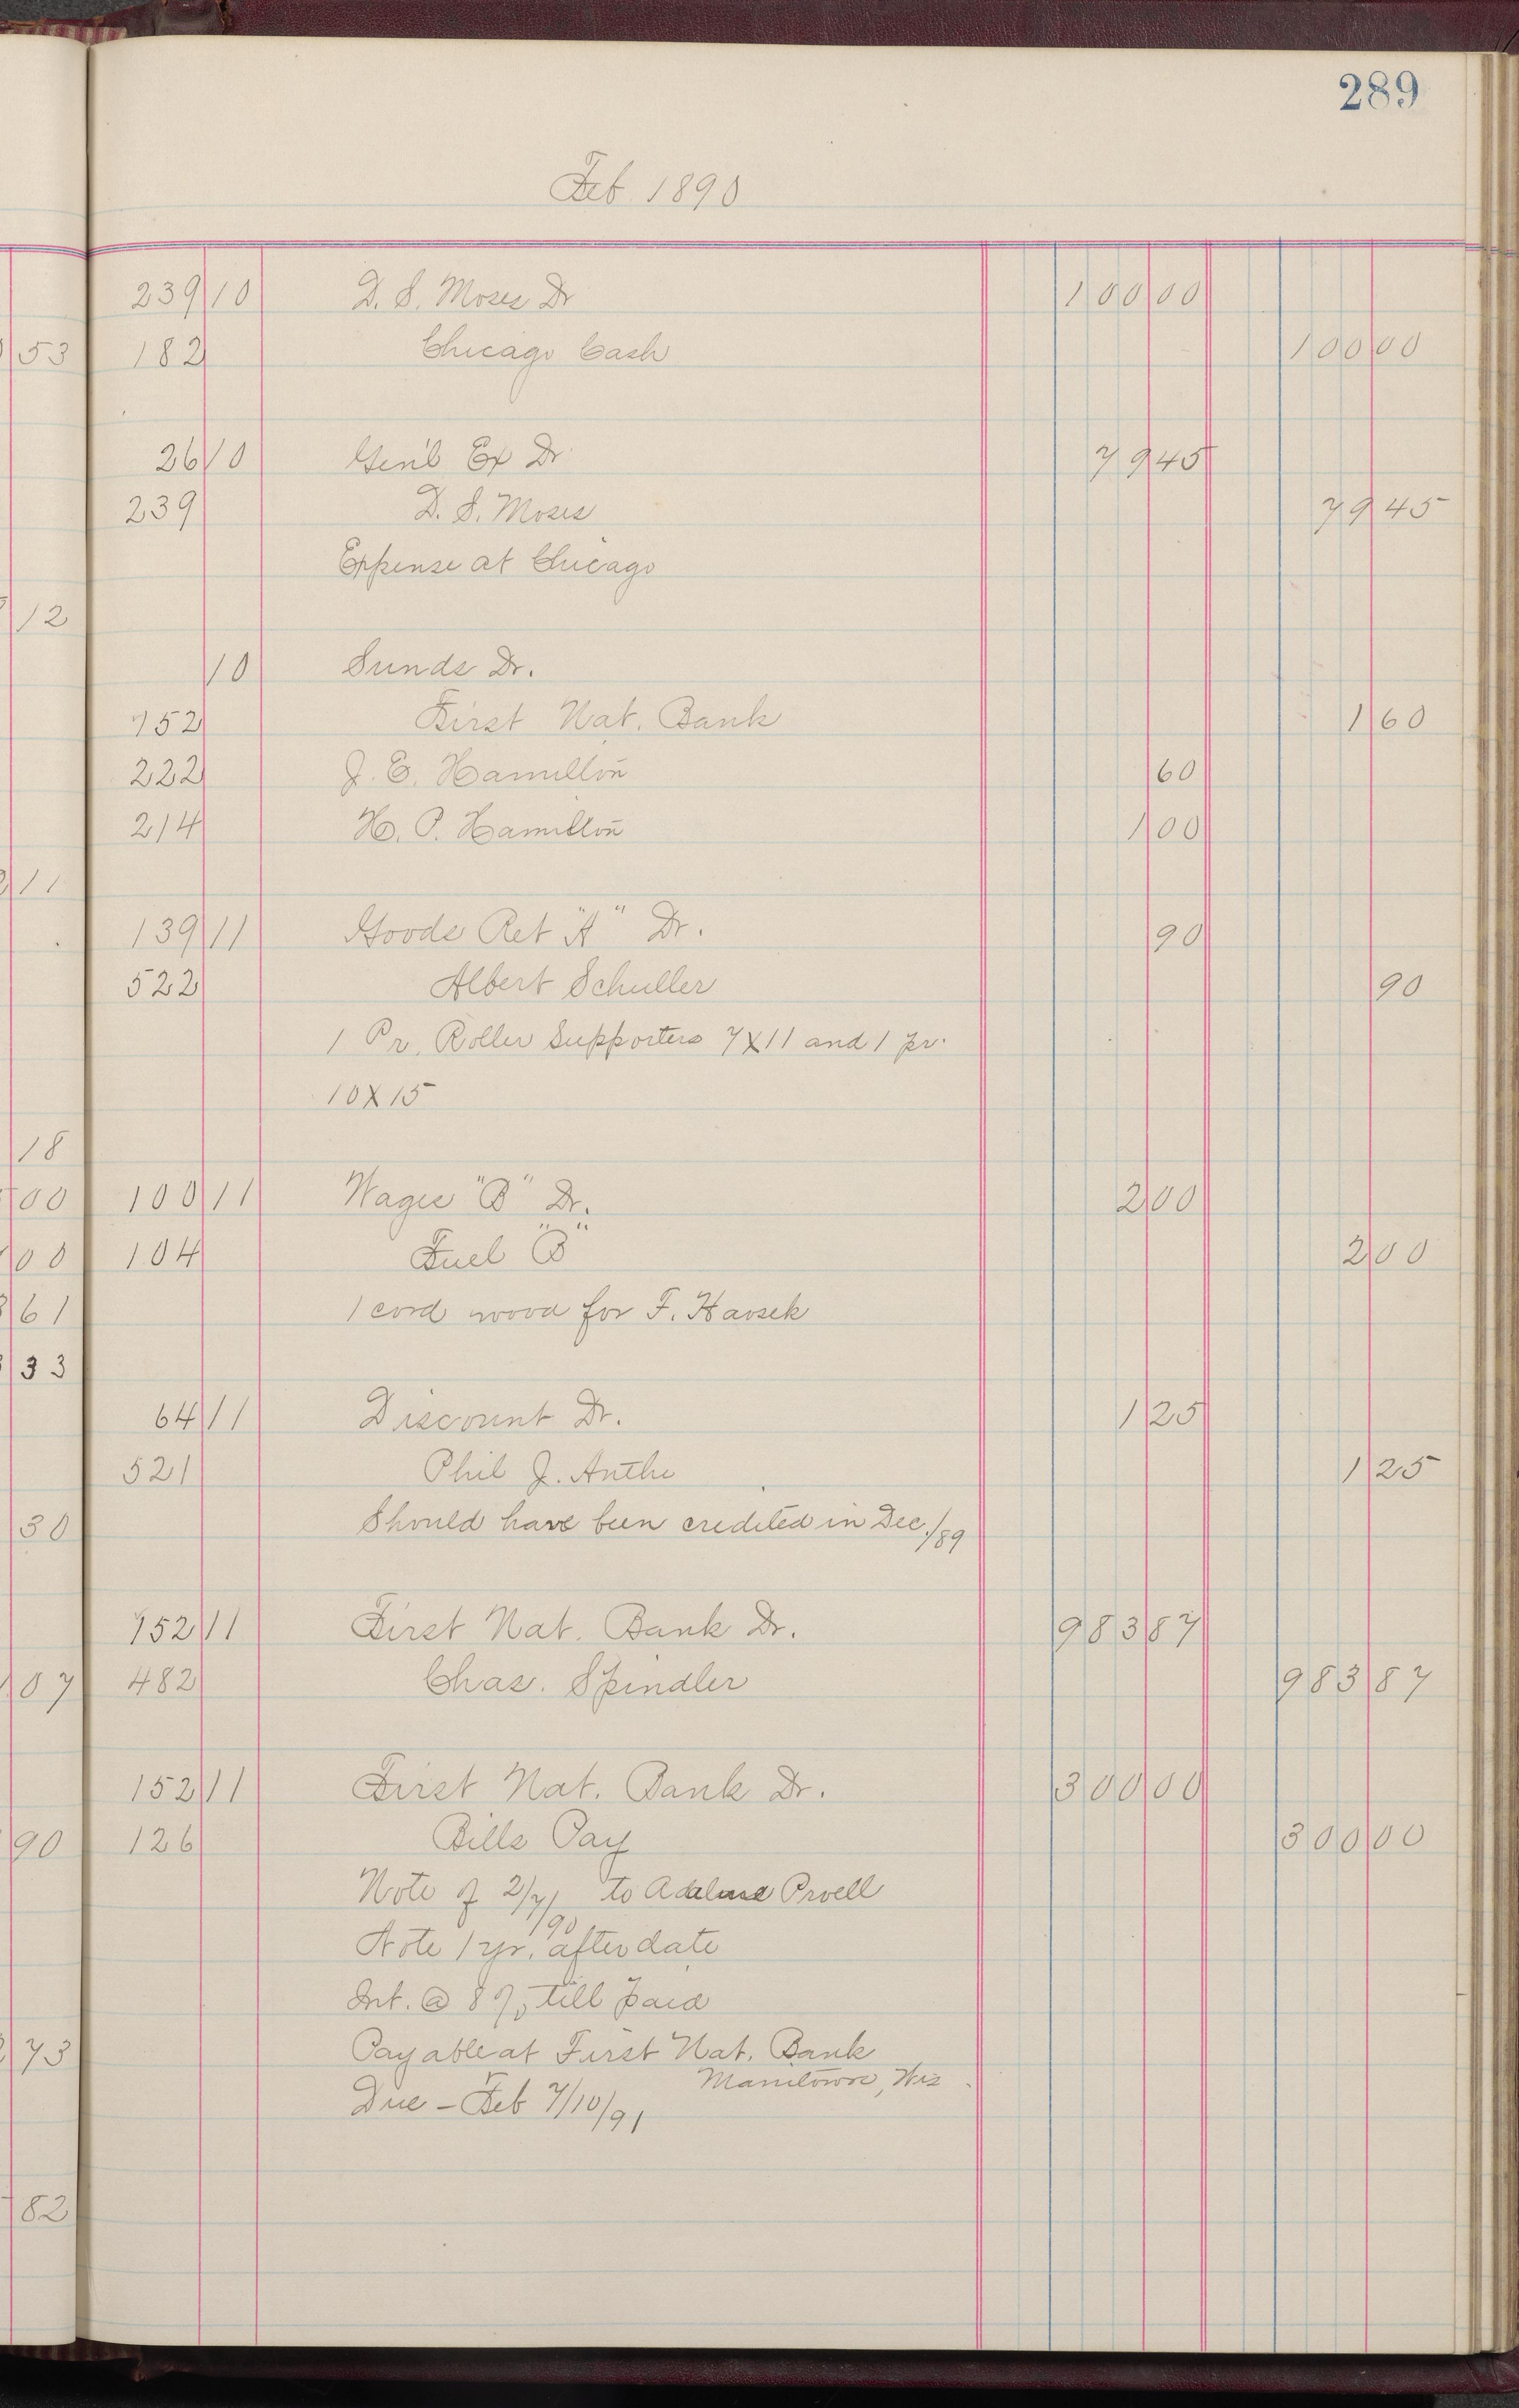 289
Feb. 1890
239 10 D. S. Moses Dr 100 00
53 182 Chicago Cash 100 00
26 10 Gen'l Ex Dr 79 45
239 D. S. Moses 79 45
Expense at Chicago
12
10 Sunds Dr.
152 First Nat. Bank 1 60
222 J. E. Hamilton 60
214 H. P. Hamilton 1 00
11
139 11 Goods Ret "A" Dr. 90
522 Albert Schuller 90
1 Pr. Roller Supporters 7X11 and 1 pr.
10X15
18
00 100 11 Wages "B" Dr. 2 00
00 104 Fuel "B" 2 00
61 1 cord wood for F. Havsek
33
64 11 Discount Dr. 1 25
521 Phil J. Anthe 1 25
30 Should have been credited in Dec./89
152 11 First Nat. Bank Dr. 983 87
07 482 Chas. Spindler 983 87
152 11 First Nat. Bank Dr. 300 00
90 126 Bills Pay 300 00
Note of 2/7/90 to Adeline Proell
Note 1 yr. after date
Int. @ 8% till paid
73 Payable at First Nat. Bank
Manitowoc, Wis.
Due - Feb 7/10/91
82